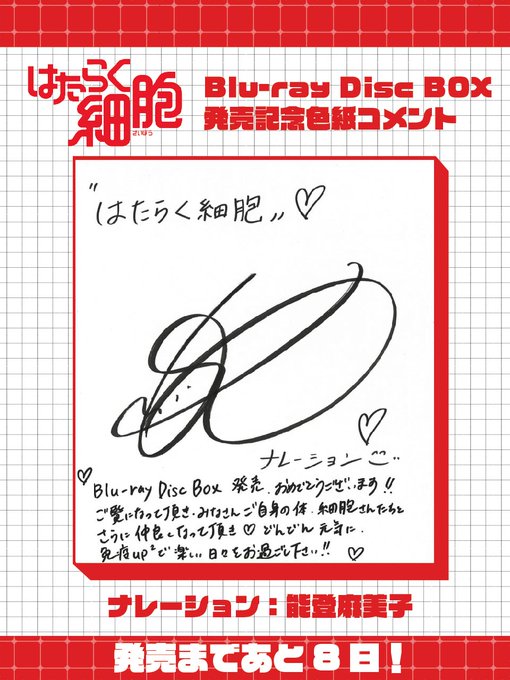 はたらく細胞
さいぼう
Blu-ray Disc BOX
発売記念色紙コメント
"はたらく細胞„♡
ナレーション
♡Blu-ray Disc Box 発売、おめでとうございます!!
ご覧になって頂き、みなさんご自身の体、細胞さんたちと
さらに仲良くなって頂き♡どんどん元気に、
免疫up²で楽しい日々をお過ごし下さい!!♡
ナレーション：能登麻美子
発売まであと8日！